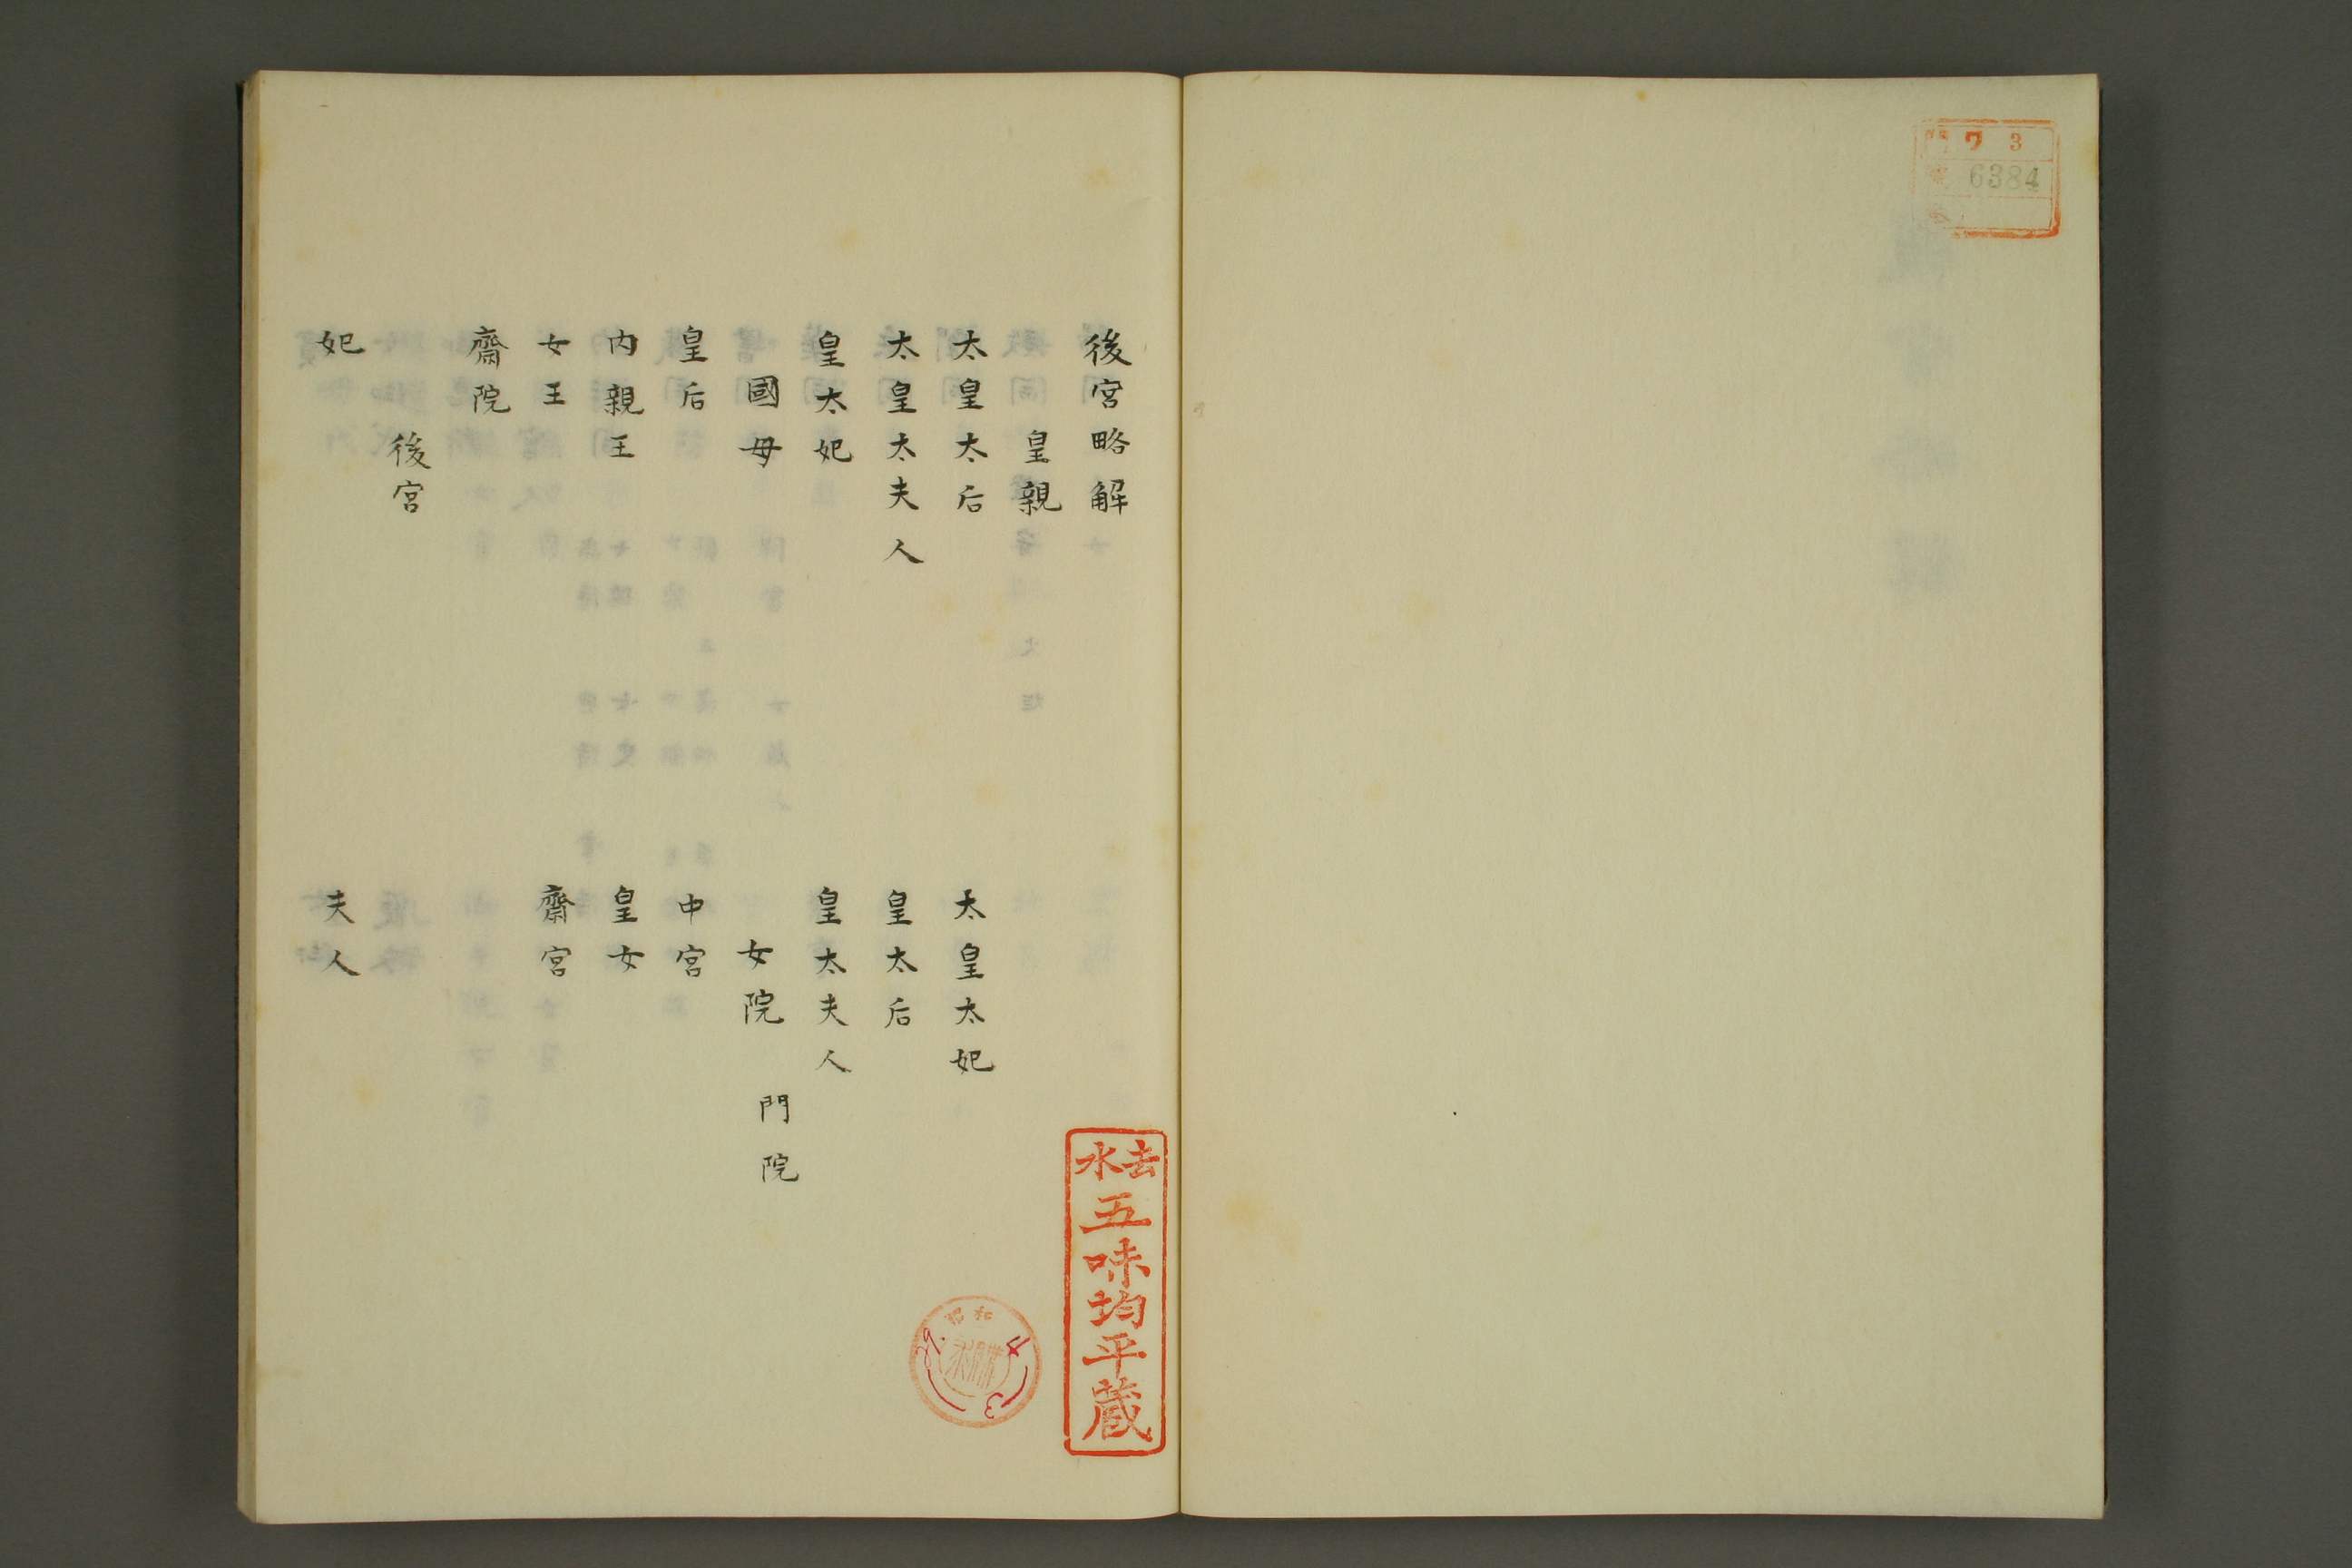 7 3
6384
後宮略解
皇親
太皇太后 太皇太妃
太皇太夫人 皇太后
皇太妃 皇太夫人
國母 女院 門院
皇后 中宮
内親王 皇女
女王 齋宮
齋院
後宮
妃 夫人
去水
五味均平蔵
昭和